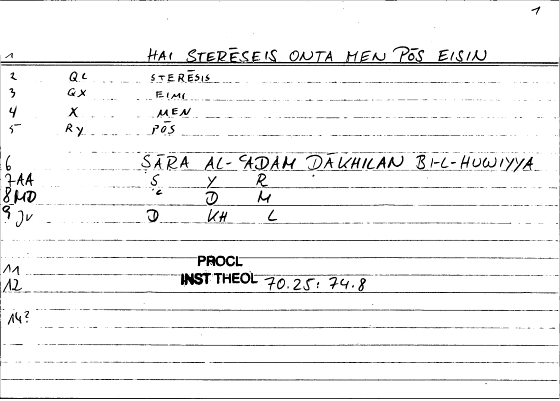 1
1 HAI STERĒSEIS ONTA MEN PŌS EISIN
2 QL STERĒSIS
3 QX EIMI
4 X MEN
5 Ry PŌS
6 ṢĀRA AL-ʿADAM DĀKHILAN BI-L-HUWIYYA
7 AA Ṣ Y R
8 MD ʿ D M
9 JV D KH L
11 PROCL
12 INST THEOL 70.25: 74.8
14?